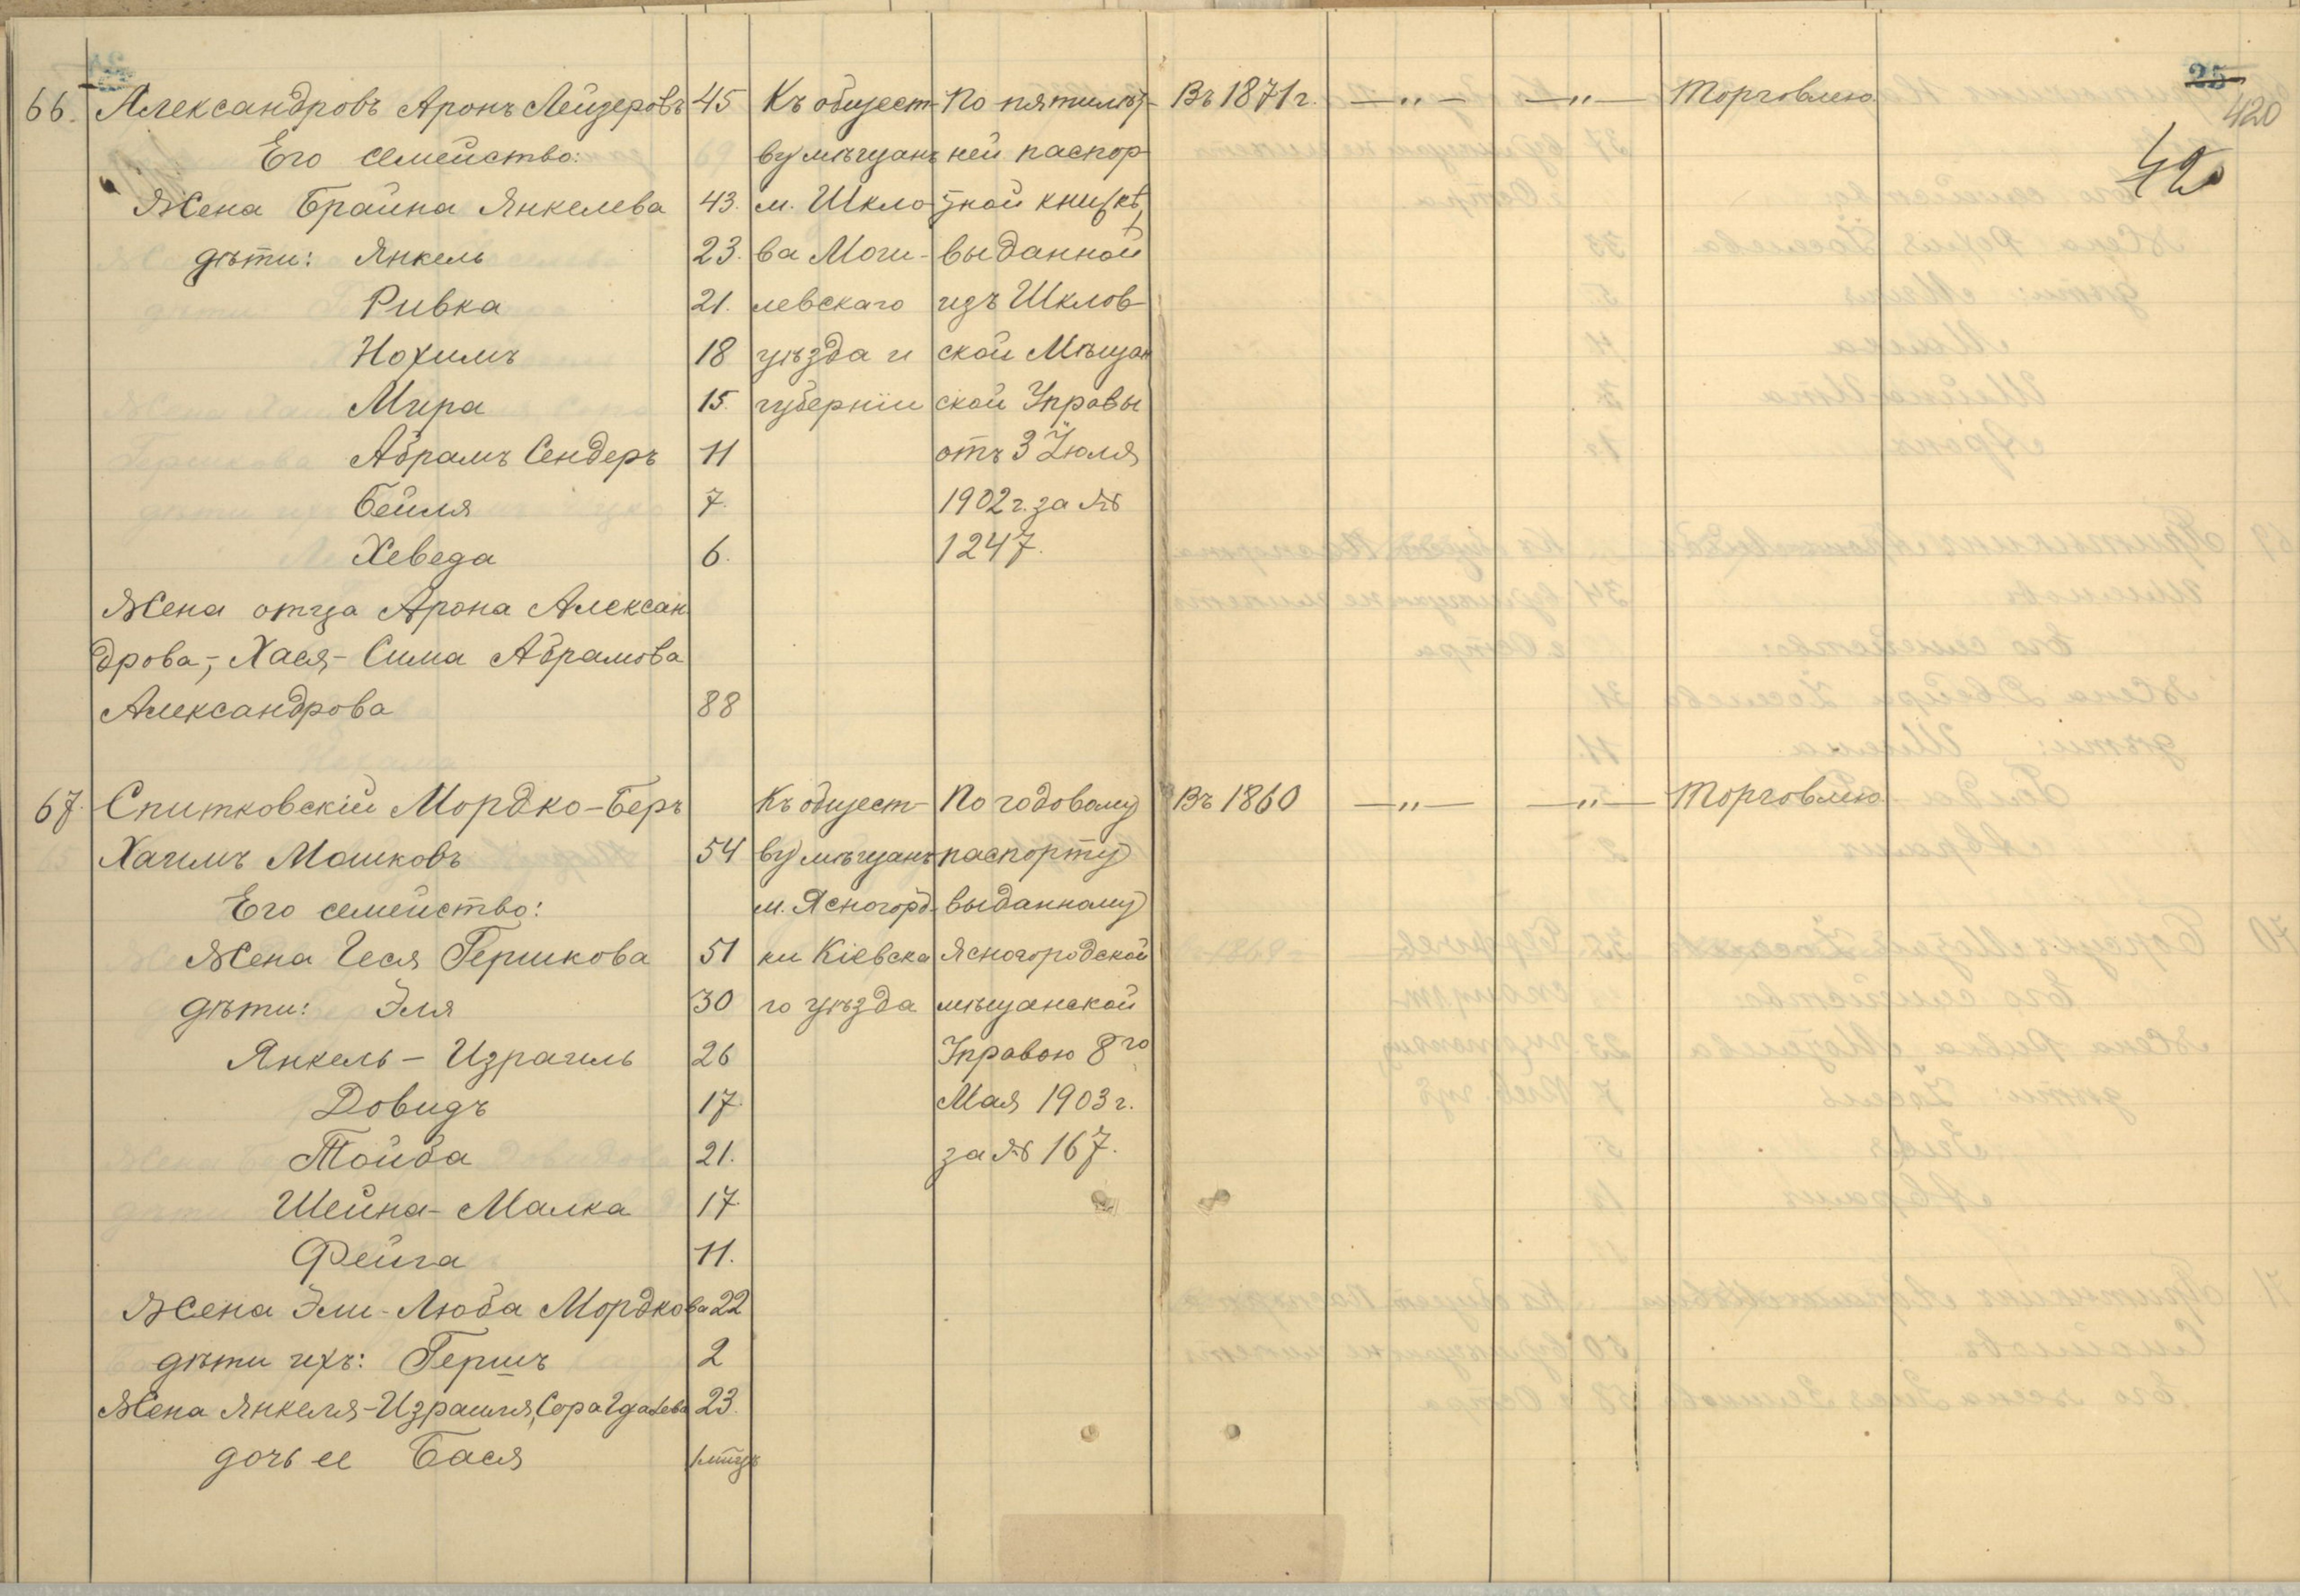 25
420
42
66. Александровъ Аронъ Лейзеровъ 45 Къ общест- По пятилѣт- Въ 1871 г. —„— —„— Торговлею
Его семейство: ву мѣщанъ ней паспор-
Жена Брайна Янкелева 43. м. Шкло- тной книжкѣ,
дѣти: Янкель 23. ва Моги- выданной
Ривка 21. левскаго изъ Шклов-
Нохимъ 18 уѣзда и ской Мѣщан
Мира 15. губернiи ской Управы
Абрамъ Сендеръ 11 отъ 3 Июля
Бейля 7. 1902 г. за №
Хеведа 6. 1247.
Жена отца Арона Алексан
дрова,- Хася-Сима Абрамова
Александрова 88
67. Спитковскiй Мордко-Беръ Къ общест- По годовому Въ 1860 —„— —„— Торговлею
Хаимъ Мошковъ 54 ву мѣщанъ паспорту
Его семейство: м. Ясногород- выданному
Жена Геся Гершкова 51 ки Кiевска Ясногородской
дѣти: Эля 30 го уѣзда мѣщанской
Янкель - Израиль 26 Управою 8го
Довидъ 17. Мая 1903 г.
Тойба 21. за № 167.
Шейна-Малка 17.
Фейга 11.
Жена Эли-Люба Мордкова 22
дѣти ихъ: Гершъ 2
Жена Янкеля-Израиля, Сора 23.
дочь ее Бася